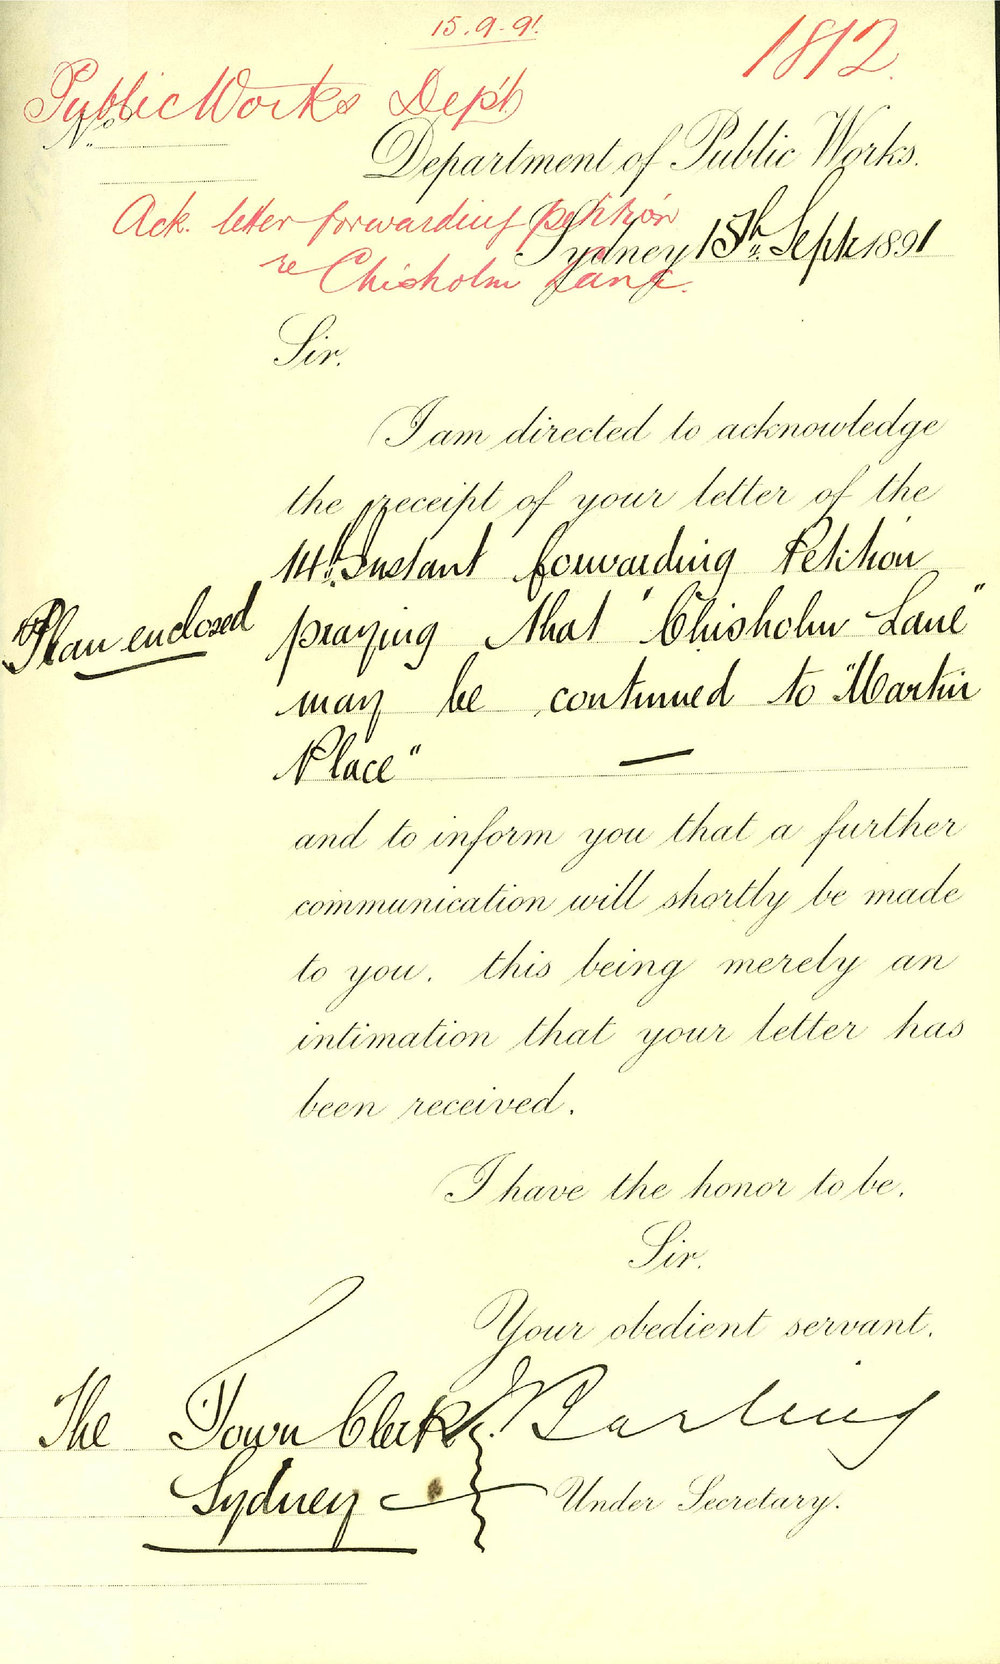 15.9.91.
1812.
Public Works Dept
No.
Department of Public Works.
Ack. letter forwarding petition
Sydney 15th Sept 1891
re Chisholm Lane.
Sir.
I am directed to acknowledge
the receipt of your letter of the
14th Instant forwarding Petition
Plan enclosed
praying that "Chisholm Lane"
may be continued to "Martin
Place" —
and to inform you that a further
communication will shortly be made
to you. this being merely an
intimation that your letter has
been received.
I have the honor to be.
Sir.
Your obedient servant.
J Barling
The Town Clerk
Sydney
Under Secretary.